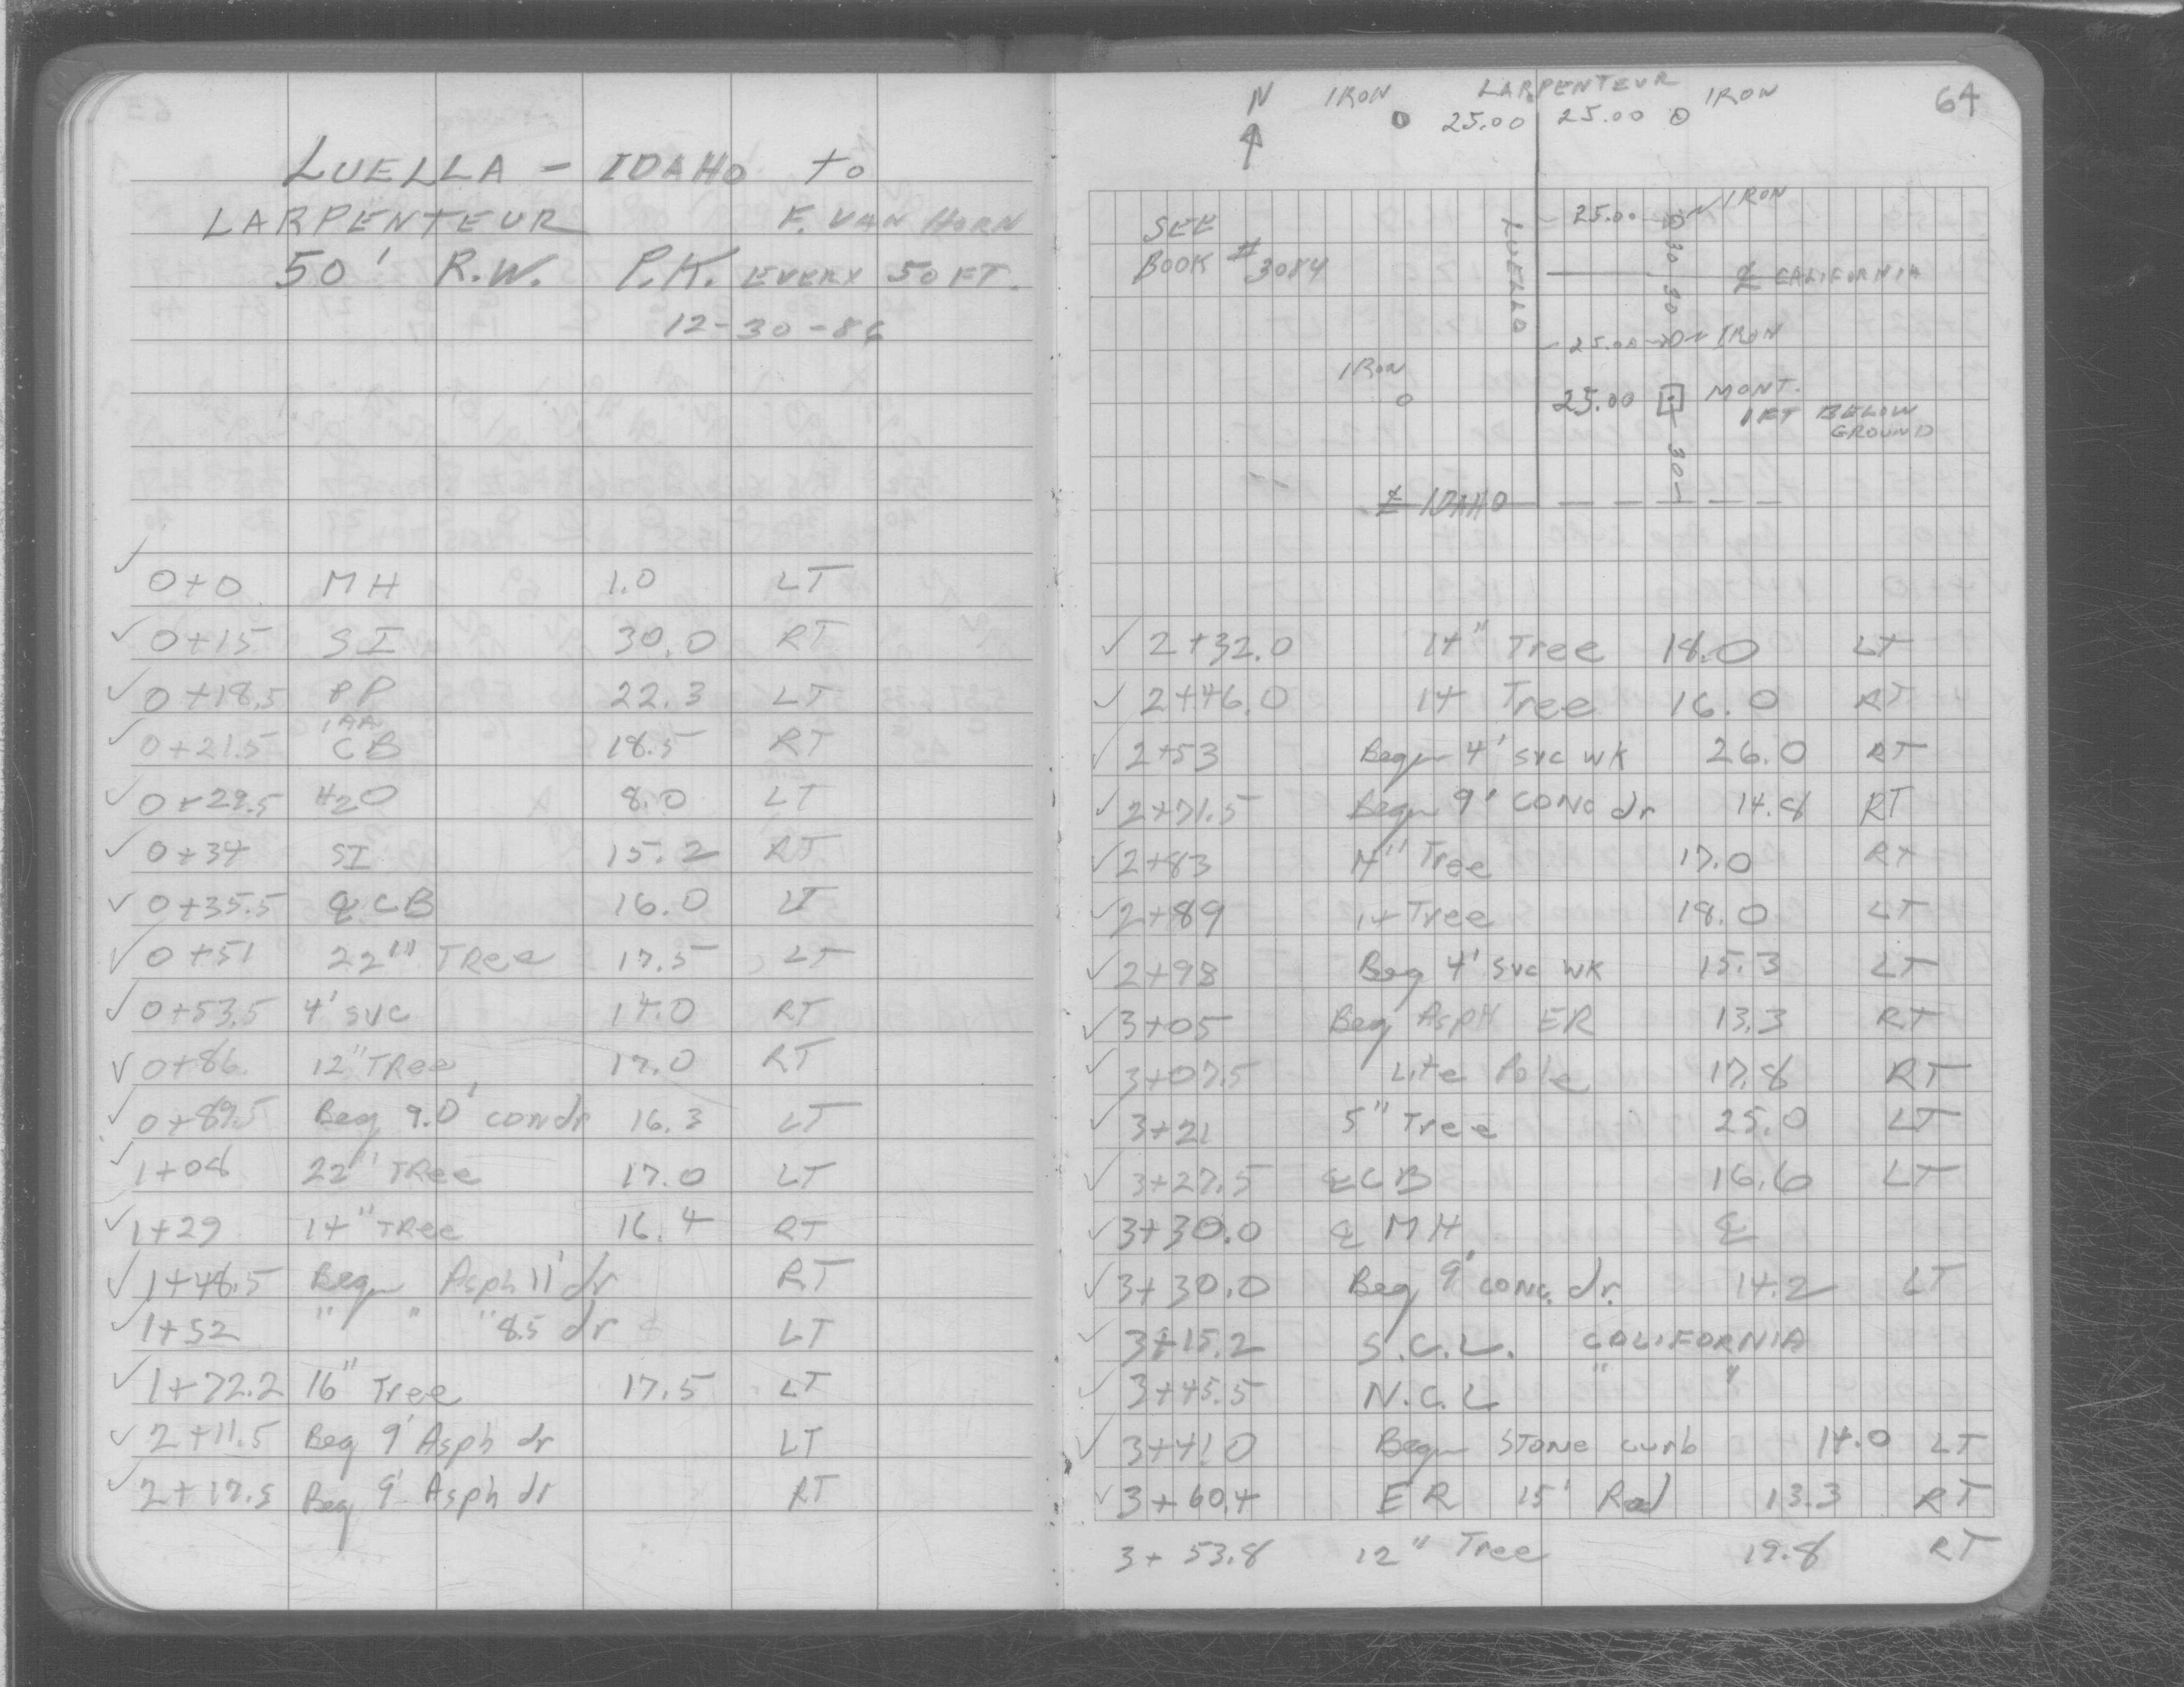 LUELLA - IDAHO to
LARPENTEUR F. VAN HORN
50' R.W. P.K. EVERY 50 FT.
12-30-86
✓ 0+0 MH 1.0 LT
✓ 0+15 SI 30.0 RT
✓ 0+18.5 PP 22.3 LT
✓ 0+21.5 CB 18.5 RT
✓ 0+29.5 H2O 8.0 LT
✓ 0+34 SI 15.2 RT
✓ 0+35.5 ℄ CB 16.0 LT
✓ 0+51 22" TRee 17.5 LT
✓ 0+53.5 4' svc 14.0 RT
✓ 0+86 12" TRee 17.0 RT
✓ 0+89.5 Beg 9.0' con dr 16.3 LT
✓ 1+08 22" TRee 17.0 LT
✓ 1+29 14" TRee 16.4 RT
✓ 1+48.5 Begn Asph 11' dr RT
✓ 1+52 " " " 8.5 dr LT
✓ 1+72.2 16" Tree 17.5 LT
✓ 2+11.5 Beg 9' Asph dr LT
✓ 2+17.5 Beg 9' Asph dr RT
64
N IRON LARPENTEUR IRON
25.00 25.00
SEE
BOOK # 3084
LUELLA
25.00 IRON
30
℄ CALIFORNIA
30
25.00 IRON
IRON
25.00 MONT.
1 FT BELOW
GROUND
30
℄ IDAHO
✓ 2+32.0 14" Tree 18.0 LT
✓ 2+46.0 14 Tree 16.0 RT
✓ 2+53 Begn 4' svc wk 26.0 RT
✓ 2+71.5 Begn 9' conc dr 14.8 RT
✓ 2+83 14" Tree 17.0 RT
✓ 2+89 14 Tree 18.0 LT
✓ 2+98 Beg 4' svc wk 15.3 LT
✓ 3+05 Beg AspH ER 13.3 RT
✓ 3+07.5 Lite Pole 17.8 RT
✓ 3+21 5" Tree 25.0 LT
✓ 3+27.5 ℄ CB 16.6 LT
✓ 3+30.0 ℄ MH ℄
✓ 3+30.0 Beg 9' conc. dr. 14.2 LT
✓ 3+15.2 S.C.L. CALIFORNIA
✓ 3+45.5 N.C.L " "
✓ 3+41.0 Begn STONE curb 14.0 LT
✓ 3+60.4 ER 15' Rad 13.3 RT
3+53.8 12" Tree 19.8 RT